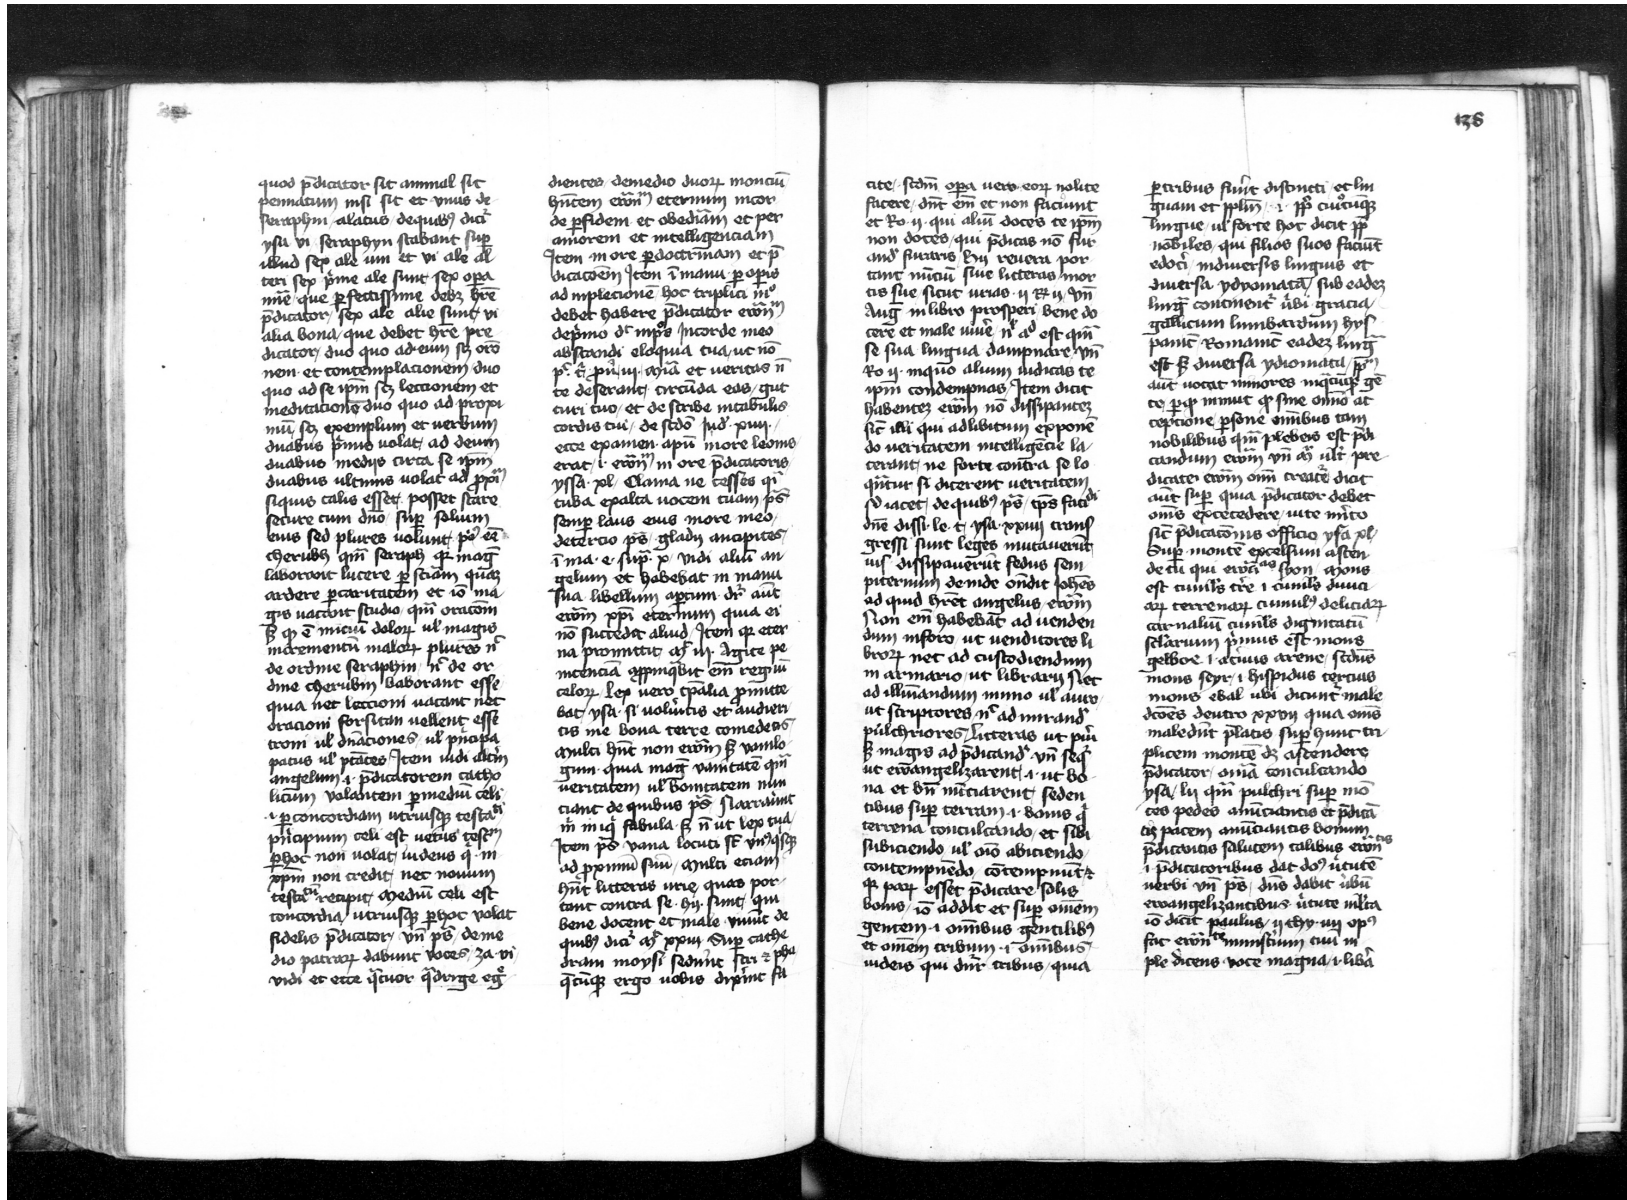 quod p̄dicator sit animal sit
pennatum nisi sit et vnus de
seraphin alatus de quibꝰ dicit᷑
ysa vi seraphyn stabant sup̄
illud sex ale vni et vi ale al̄
teri sex p̄me ale sunt sex opa
mīe que p̲fectissime debꝫ hr̄e
p̄dicator / sex ale alie sunt vi
alia bona / que debet hr̄e pre
dicator / duo quo ad eum sꝫ orō
nem et contemplacionem duo
quo ad se ip̄m sꝫ leccionem et
meditacionē duo quo ad proxi
mū sꝫ exemplum et verbum
duabus p̄mis volat ad deum
duabus medijs circa se ip̄m
duabus vltimis volat ad proxīm
siquis talis esset posset stare
secure cum dn̄o / sup̄ solium
eius sed plures volunt
cherubī qm̄ seraph qꝛ maḡ
laborant lucere p̲ sciam quā
ardere p̲ caritatem et iō ma
gis vacant studio / qm̄ oracōm
incrementū malorꝝ plures n̄
de ordine seraphin / n̄ de or
dine cherubin laborant esse
quia nec leccioni vacant nec
oracioni forsitan vellent esse
troni ul̓ dn̄aciones / ul̓ p̄ncipa
patus ul̓ ptātes / Item vidi alt̓m
angelum .i. p̄dicatorem catho
licum volantem p̲ mediū celi
.i. p̲ concordiam utriusqꝫ testati
p̄ncipium celi est vetus testm̄
p̲ hoc non volat iudeus q̓ in
xp̄m non credit / nec nouum
testam̄ recipit / Mediū celi est
concordia utriusqꝫ p̲ hoc volat
fidelis p̄dicator / vn̄ ps̄ / de me
dio petrarꝝ dabunt voces / za vi
vidi et ecce q̓tuor q̓drige eg̓
dientes de medio duorꝝ monciū
hn̄tem ewā̄m eternum in cor
de p̲ fidem et obediā̄m et per
amorem et intelligenciam
Item in ore p̲ doctrinam et p̄
dicatoēm Item ī manu p̲ opis
ad inplecionē hoc triplici mō
debet habere p̄dicator ewā̄m
de p̄mo dꝛ in ps̄ In corde meo
abscondi eloquia tua / ut nō
pꝛ . tꝛ . pū . iij . mīa et veritas n̄
te deserant / circūda eas / gut
turi tuo / et describe in tabulis
cordis tui / de scd̄o Iud̓ xiiij
ecce examen apū in ore leonis
erat / .i. ewā̄m in ore p̄dicatoris
yssa xl / Clama ne cesses q̓i
tuba exalta vocem tuam ps̄
semp̲ laus eius in ore meo /
de tercio ps̄ / gladij ancipites
ī ma . e . sup̄ . x vidi aliū an
gelum et habebat in manu
sua libellum ap̲tum dr̄ aūt
ewā̄m xp̄i eternum quia ei
nō succedit aliud / Item qꝛ eter
na promittit / mr̄ iij . Agite pe
nitenciā app̲inq̓bit em̄ regnū
celorꝝ / lex vero tp̲alia p̲mitte
bat / ysa si volu̓itis et audieri
tis me bona terre comedetis
Multi hn̄t non ewā̄m sꝫ vanilo
qium quia mag̓ vanitatē qm̄
veritatem ul̓ bonitatem nun
ciant de quibus ps̄ Narrauert
m̄ iniq̓ fabula sꝫ n̄ ut lex tua /
Item ps̄ vana locuti st̄ vnꝰqisqꝫ
ad p̲ximū suū / Multi eciam
hn̄t litteras vrie quas por
tant contra se . hij sunt / qui
bene docent et male viuūt de
quibꝰ dicit᷑ mr̄ xxiij Sup̲ cathe
dram moysi sederūt scri ⁊ pha
q̄cūqꝫ ergo vobis dixerint fa
138
cite / scd̄m opa vero eorꝝ nolite
facere / dn̄t em̄ et non faciunt
et Ro ij qui aliū doces te ip̄m
non doces / qui p̄dicas nō fur
and᷑ furaris Hij reuera por
tant nūciū siue litteras mor
tis sue sicut vrias ij R̄ ij / vn̄
Aug̓ in libro prosperi / bene do
cere et male viue̓ / n̄ aḋ est qm̄
se sua lingua dampnare / vn̄
Ro ij in quo alium iudicas te
ip̄m condempnas / Item dicit
habentez ewā̄m nō dissipantez
sic̄ illi qui ad libitum exponē
do veritatem intelligencie la
cerant / ne forte contra se lo
q̓ntur si dicerent veritatem
sꝫ iacet / de quibꝰ ps̄ / tp̄s faci di
dn̄e dissi . le . t / ysa xxiiij trans
gressi sunt leges mutauerūt
ius dissipauerūt fedus sem
piternum deinde on̄dit Iohēs
ad quid hr̄et angelus / ewā̄m
Non em̄ habebat ad venden
dum in foro / ut venditores li
brorꝝ nec ad custodiendum
in armario ut librarij Nec
ad illuminandum minio ul̓ auro
ut scriptores / n̄ ad mirand᷑
pulchriores litteras ut pu̓i
sꝫ magis ad p̄dicand᷑ vn̄ seq̓
ut ewangelizarent .i. ut bo
na et bn̄ nunciarent seden
tibus sup̲ terram .i. bonis q̓
terrena conculcando / et sibi
subiciendo ul̓ oīo abiciendo /
contempnēdo / cōtempnūt ⁊
qꝛ parꝝ esset p̄dicare solis
bonis / iō addit et sup̲ omēm
gentem .i. omnibus gentilibꝰ
et omēm tribum .i. omnibus
iudeis qui dn̄r tribus / quia
p̲ tribus fuerūt distincti et lin
guam et ppl̄m .i. pp̄o cuiꝰcūqꝫ
lingue / ul̓ forte hoc dicit pp̄
nobiles / qui filios suos faciūt
edoceri in diuersis linguis et
diuersa ydyomata / sub eadez
ling̓ continent᷑ ubi gracia /
gallicum lumbardum hys
panū Romanū eadez ling̓
est sꝫ diuersa ydiomata / pp̄m
aūt vocat minores inq̓cūqꝫ gē
te / p̲ qꝫ innuit qꝫ sine omō ac
cepcione p̲sone omībus tam
nobilibus qm̄ plebeis est p̄di
candum ewā̄m vn̄ mr̄ ult̓ pre
dicate ewā̄m om̄i creatᷓe dicit
aūt sup̲ quia p̄dicator debet
om̄s excedere / vite mīto
sic̄ p̄dicatōnis officio ysa xl /
Sup̲ montē excelsum ascen
de tu qui ewā̄as syon Mons
est cumulꝰ tr̄e .i. cumulꝰ diuici
arꝝ terrenarꝝ cumulꝰ deliciarꝝ
carnaliū cumulꝰ dignitatū
sclarium p̄mus est mons
gelboe .i. acuus arene / scd̄us
mons seyr .i. hispidus tercius
mons ebal vbi dicunt᷑ male
dcōes deutro xxvij quia om̄s
maledn̄t p̄latis sup̲ hunc tri
plicem montem dꝫ ascendere
p̄dicator / omīa conculcando
ysa / lij qm̄ pulchri sup̲ mō
tes pedes anūciantis et p̄dicā
tis pacem anūciantis bonum
p̄dicantis salutem talibus ewā̄tis
.i. p̄dicatoribus dat doꝰ v̓tutē
verbi vn̄ ps̄ / dn̄s dabit v̓bū
ewangelizantibus v̓tute mul̓ta
iō dicit paulus / ij thy iiij opꝰ
fac ewā̄te ministerium tuū in
ple dicens voce magna .i. lib̓a